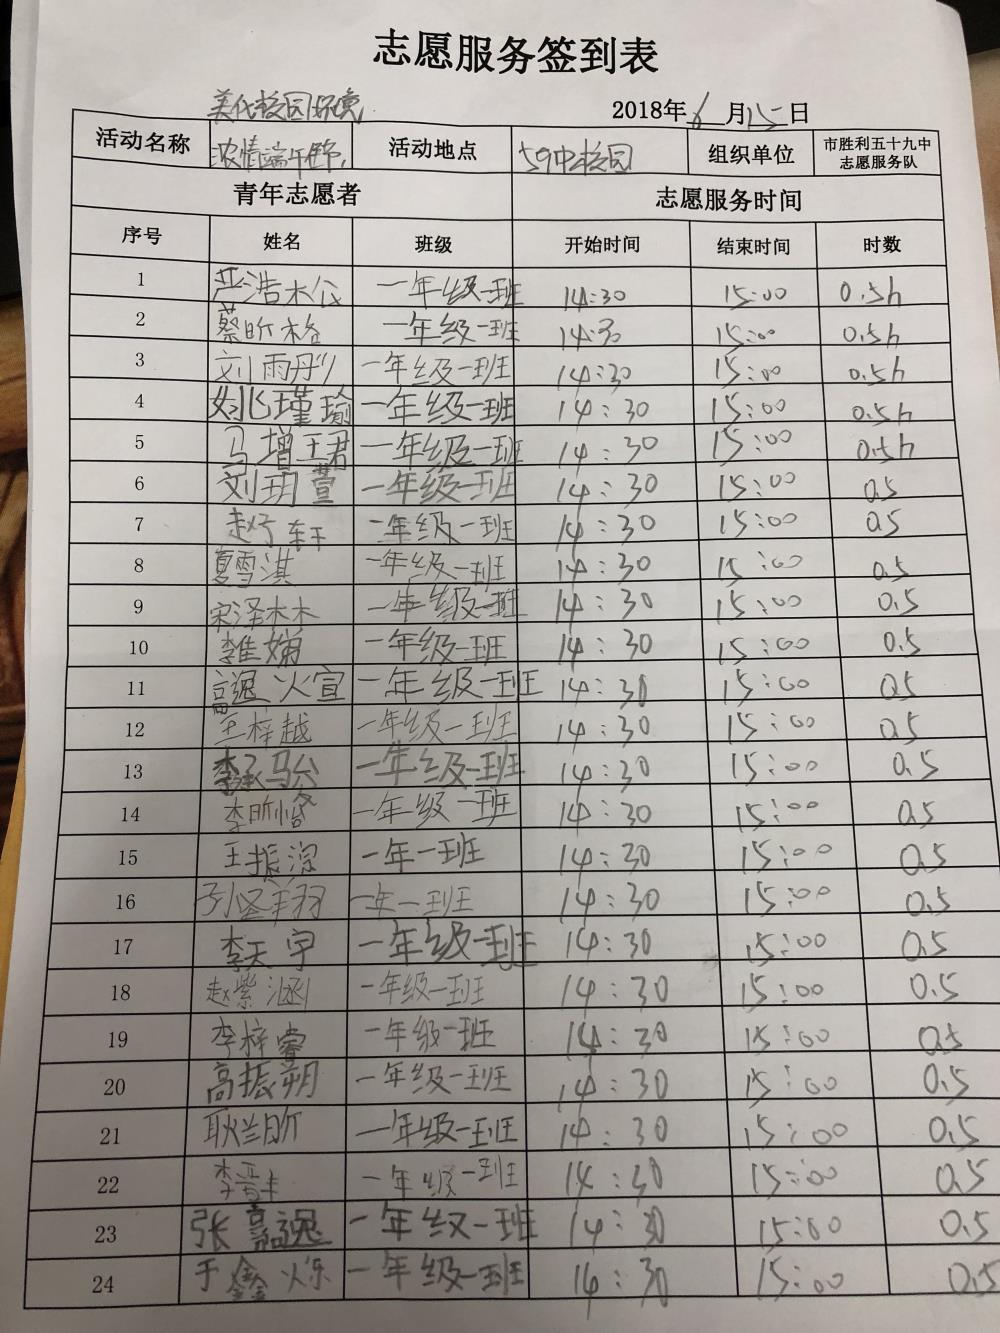 志愿服务签到表
2018年6月15日
活动名称 美化校园环境 浓情端午 活动地点 59中校园 组织单位 市胜利五十九中志愿服务队
青年志愿者 志愿服务时间
序号 姓名 班级 开始时间 结束时间 时数
1 严浩松 一年级一班 14:30 15:00 0.5h
2 蔡昕格 一年级一班 14:30 15:00 0.5h
3 刘雨彤 一年级一班 14:30 15:00 0.5h
4 姚瑾瑜 一年级一班 14:30 15:00 0.5h
5 马增珺 一年级一班 14:30 15:00 0.5h
6 刘玥萱 一年级一班 14:30 15:00 0.5
7 赵子轩 一年级一班 14:30 15:00 0.5
8 夏雪淇 一年级一班 14:30 15:00 0.5
9 宋泽林 一年级一班 14:30 15:00 0.5
10 李佳娣 一年级一班 14:30 15:00 0.5
11 逸煊 一年级一班 14:30 15:00 0.5
12 王梓越 一年级一班 14:30 15:00 0.5
13 李承骀 一年级一班 14:30 15:00 0.5
14 李昕恪 一年级一班 14:30 15:00 0.5
15 王振 一年一班 14:30 15:00 0.5
16 翔羽 一年一班 14:30 15:00 0.5
17 李天宇 一年级一班 14:30 15:00 0.5
18 赵紫涵 一年级一班 14:30 15:00 0.5
19 李梓睿 一年级一班 14:30 15:00 0.5
20 高振朔 一年级一班 14:30 15:00 0.5
21 耿兰昕 一年级一班 14:30 15:00 0.5
22 李 一年级一班 14:30 15:00 0.5
23 张嘉逸 一年级一班 14:30 15:00 0.5
24 于鑫烁 一年级一班 14:30 15:00 0.5